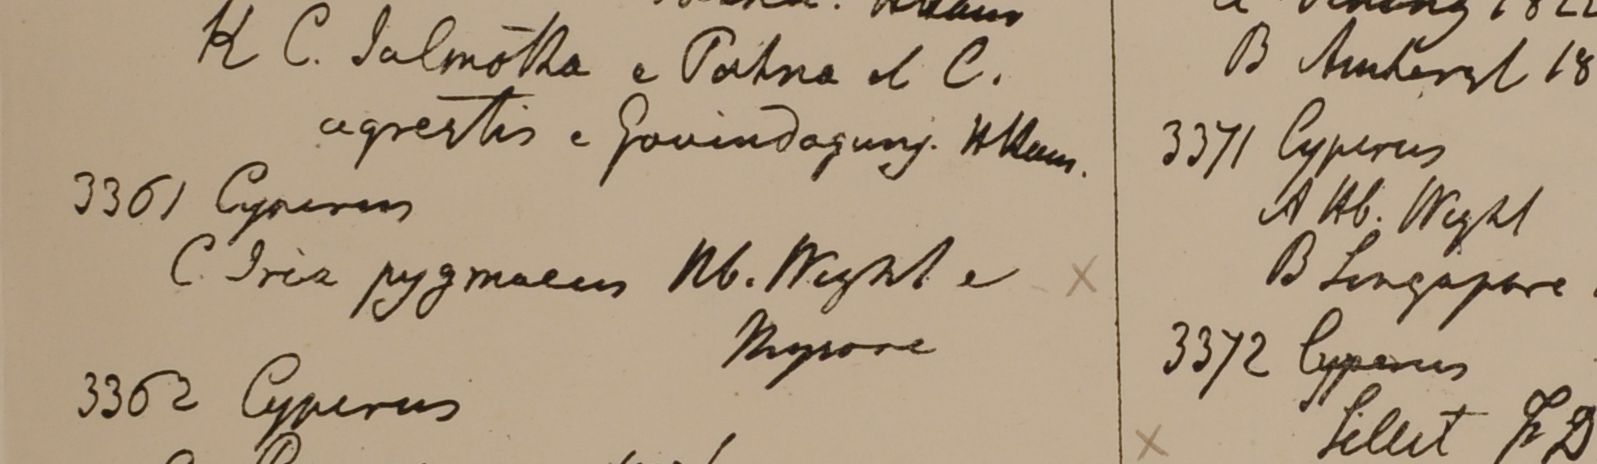 K C. Salmotha e Patna et C.
agrestis e Govindagunj. HHam.
3361 Cyperus
C. Iria pygmaeus Hb. Wight e X
Mysore
3362 Cyperus
B Amherst 18
3371 Cyperus
A Hb. Wight
B Singapore
3372 Cyperus
X Sillet FD